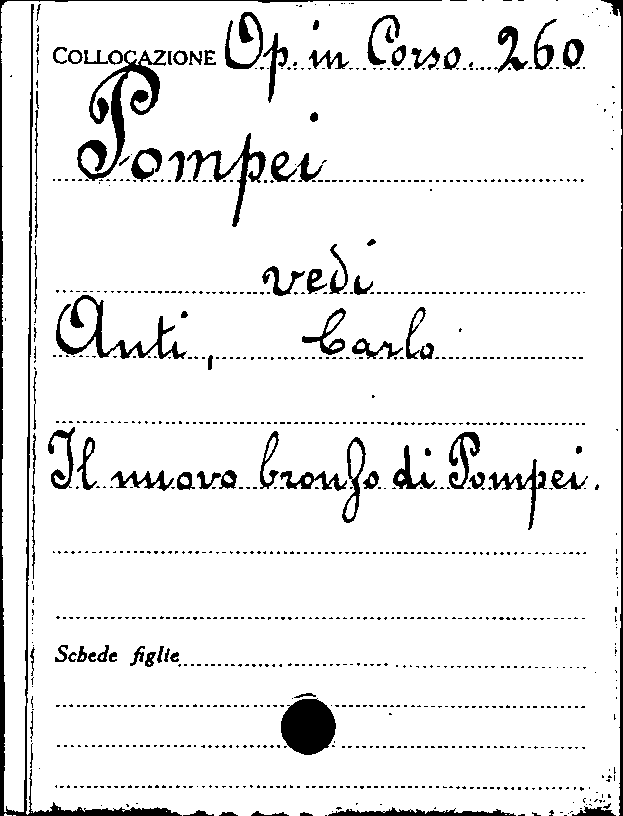 COLLOCAZIONE Op. in Corso. 260
Pompei
vedi
Anti, Carlo
Il nuovo bronzo di Pompei.
Schede figlie